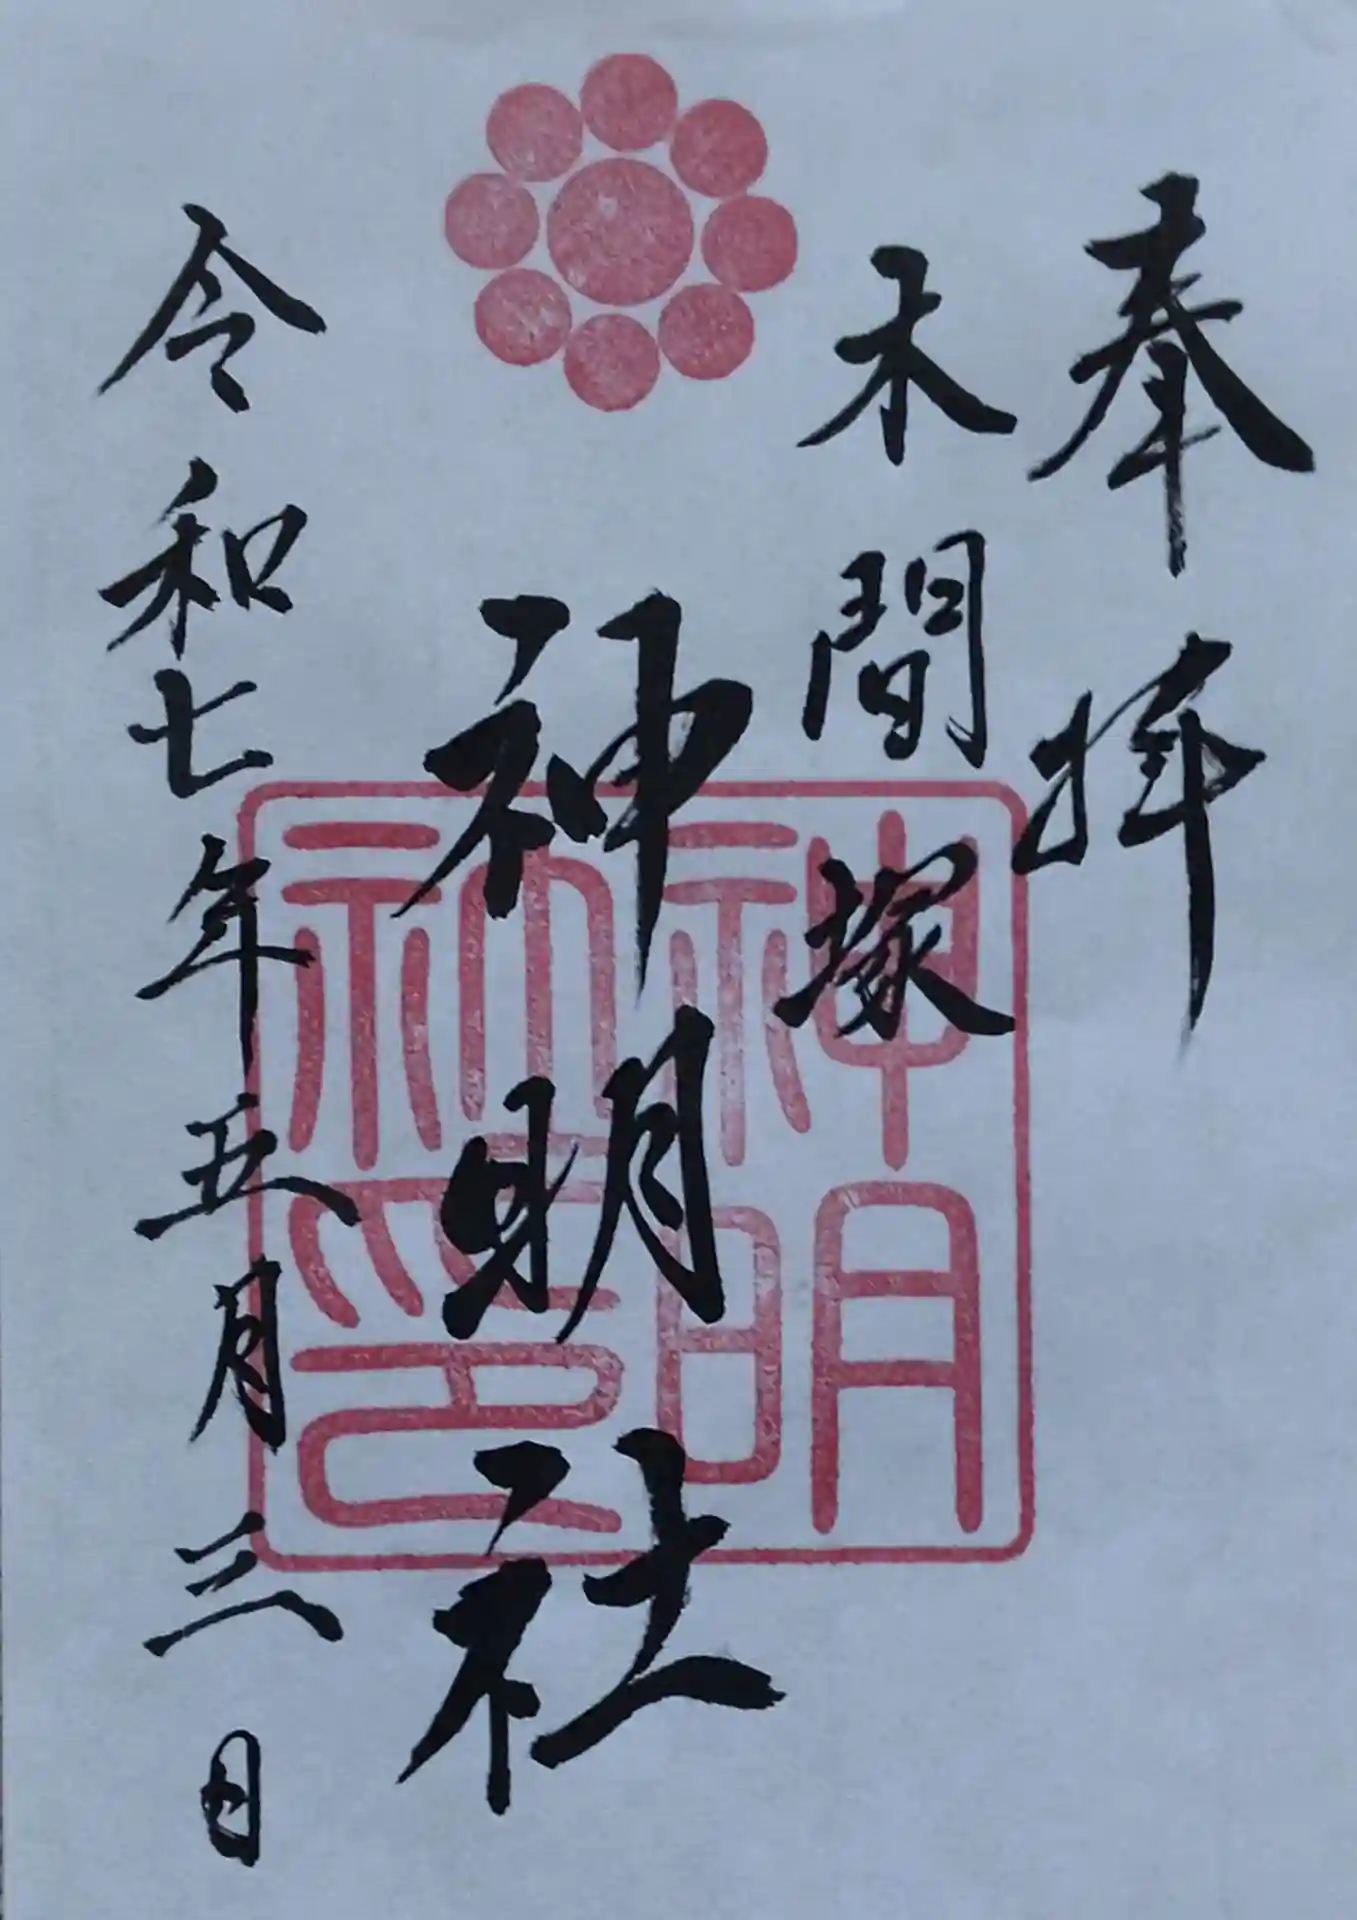 奉拝
木間塚
神明社
令和七年五月三日
神明社印